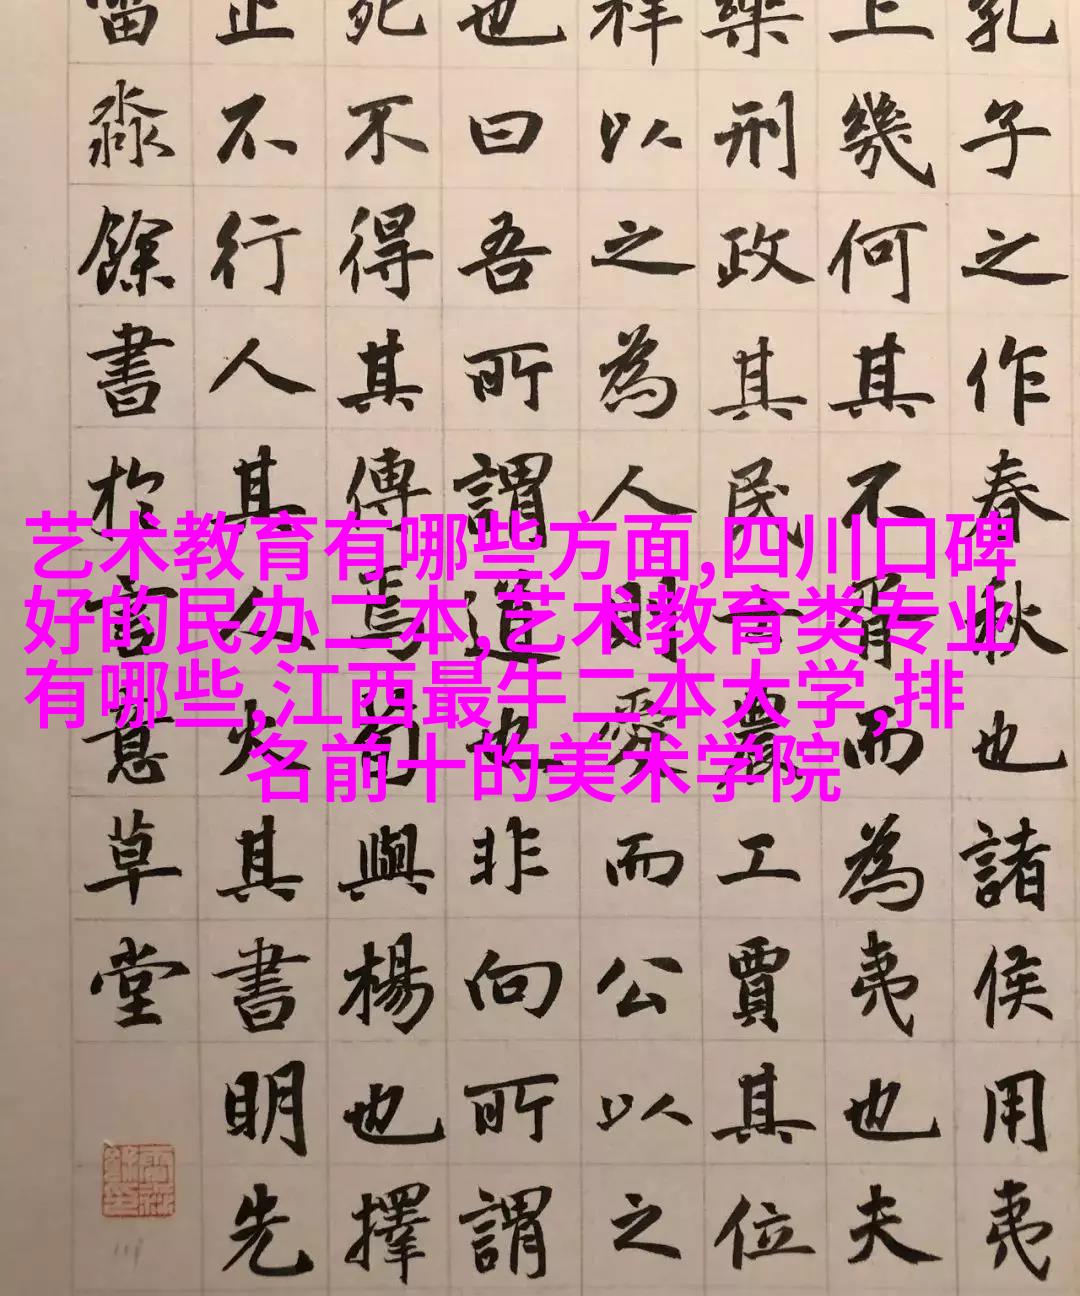 孔子之作春秋也諸侯用夷
上幾何其不胥而為夷也夫
樂刑政其民士農工賈其位
祥以之為人則愛而公以之
也曰吾所謂道也非向所謂
死不得其傳焉荀與楊也擇
止不行人其人火其書明先
淼餘書於意草堂
艺术教育有哪些方面,四川口碑
好的民办二本,艺术教育类专业
有哪些,江西最牛二本大学,排
名前十的美术学院